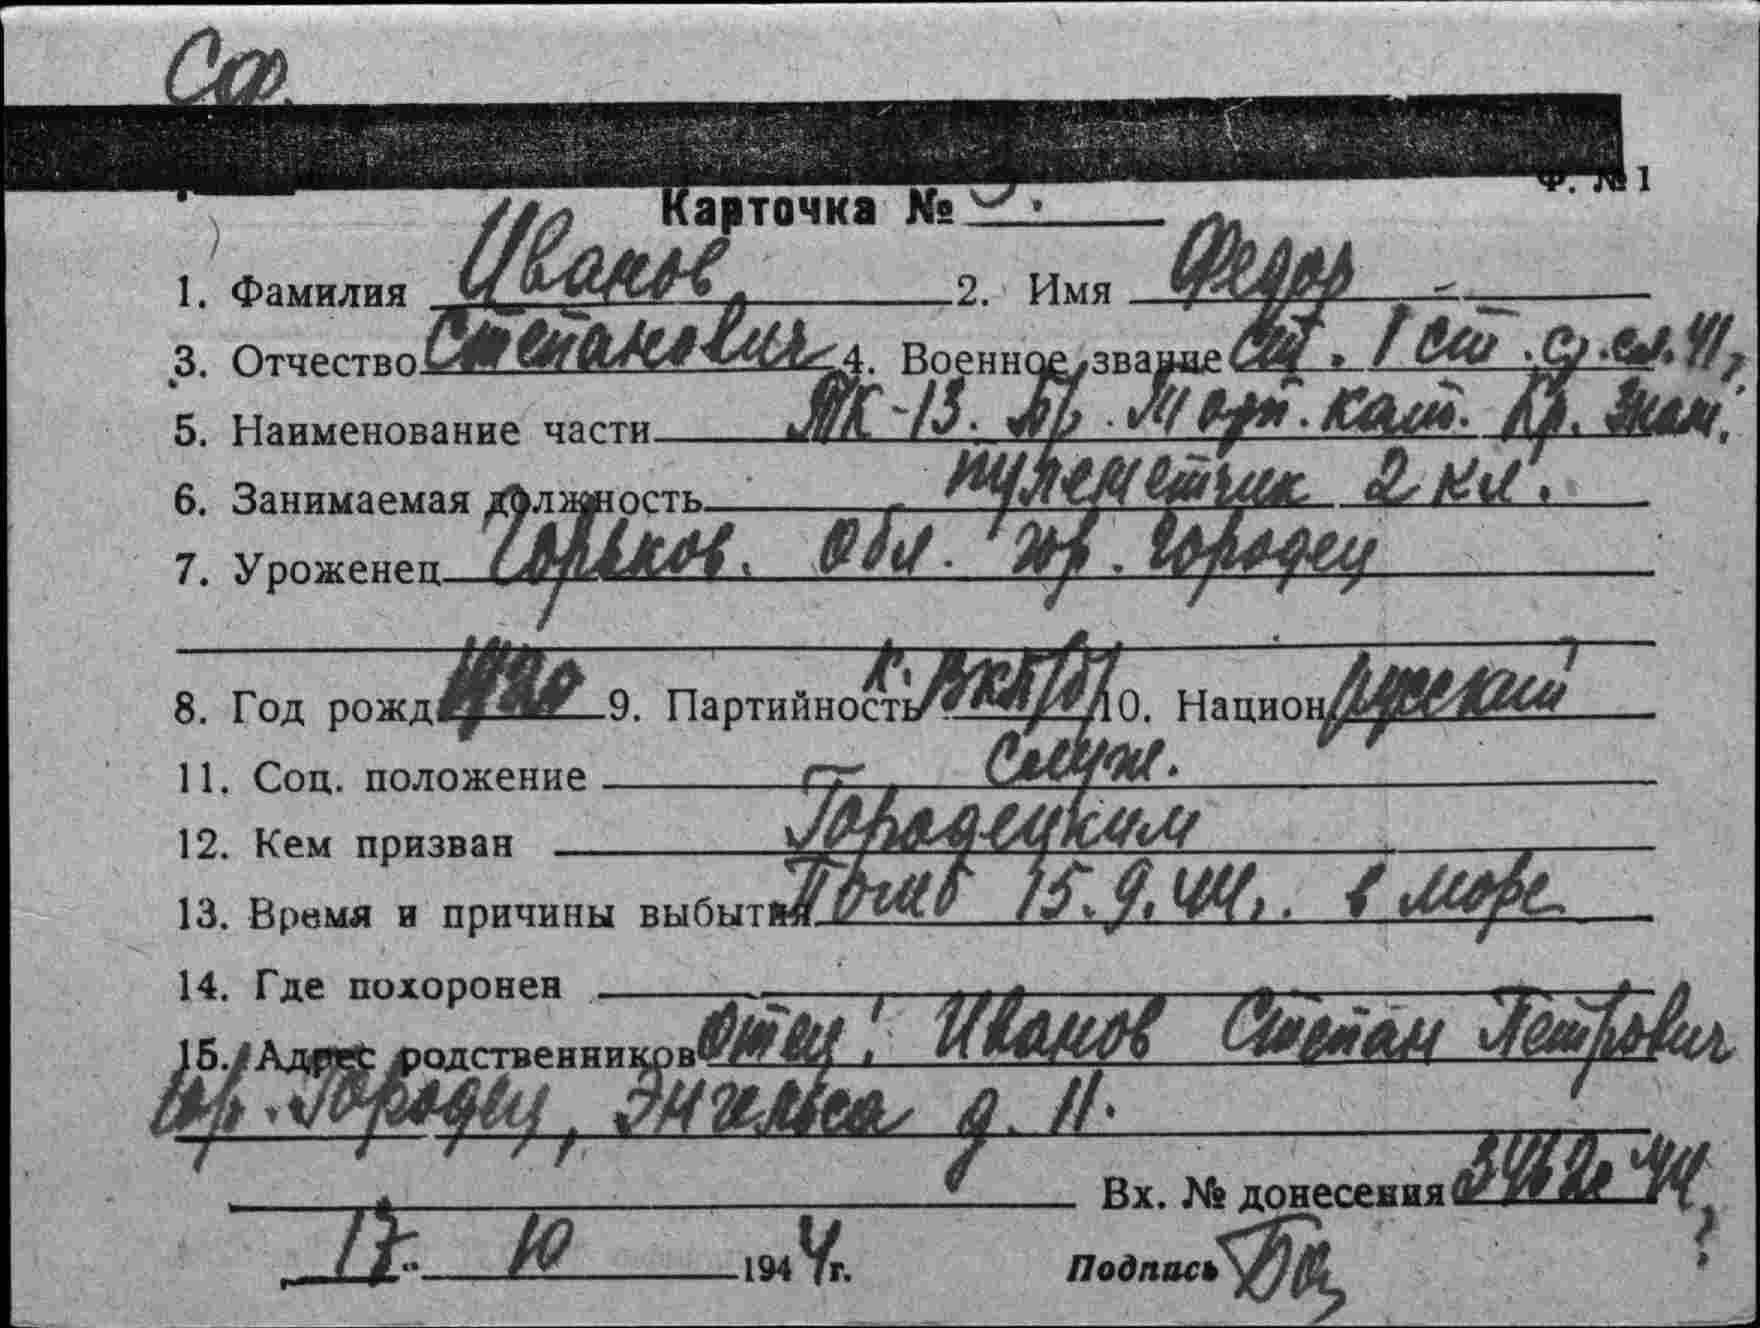 Сф.
Ф. № 1
Карточка №
1. Фамилия Иванов 2. Имя Федор
3. Отчество Степанович 4. Военное звание Ст. 1 ст. ср. сл. 41,
5. Наименование части ТК-13. Бр. Торп. кат. Кр. Знам.
6. Занимаемая должность пулеметчик 2 кл.
7. Уроженец Горьков. обл. гор. Городец
8. Год рожд. 1920 9. Партийность К. ВКП(б) 10. Национ. русский
11. Соц. положение служ.
12. Кем призван Городецким
13. Время и причины выбытия Погиб 15.9.44г. в море
14. Где похоронен
15. Адрес родственников отец: Иванов Степан Петрович
гор. Городец, Энгельса д. 11.
Вх. № донесения
17. 10 1944 г. Подпись